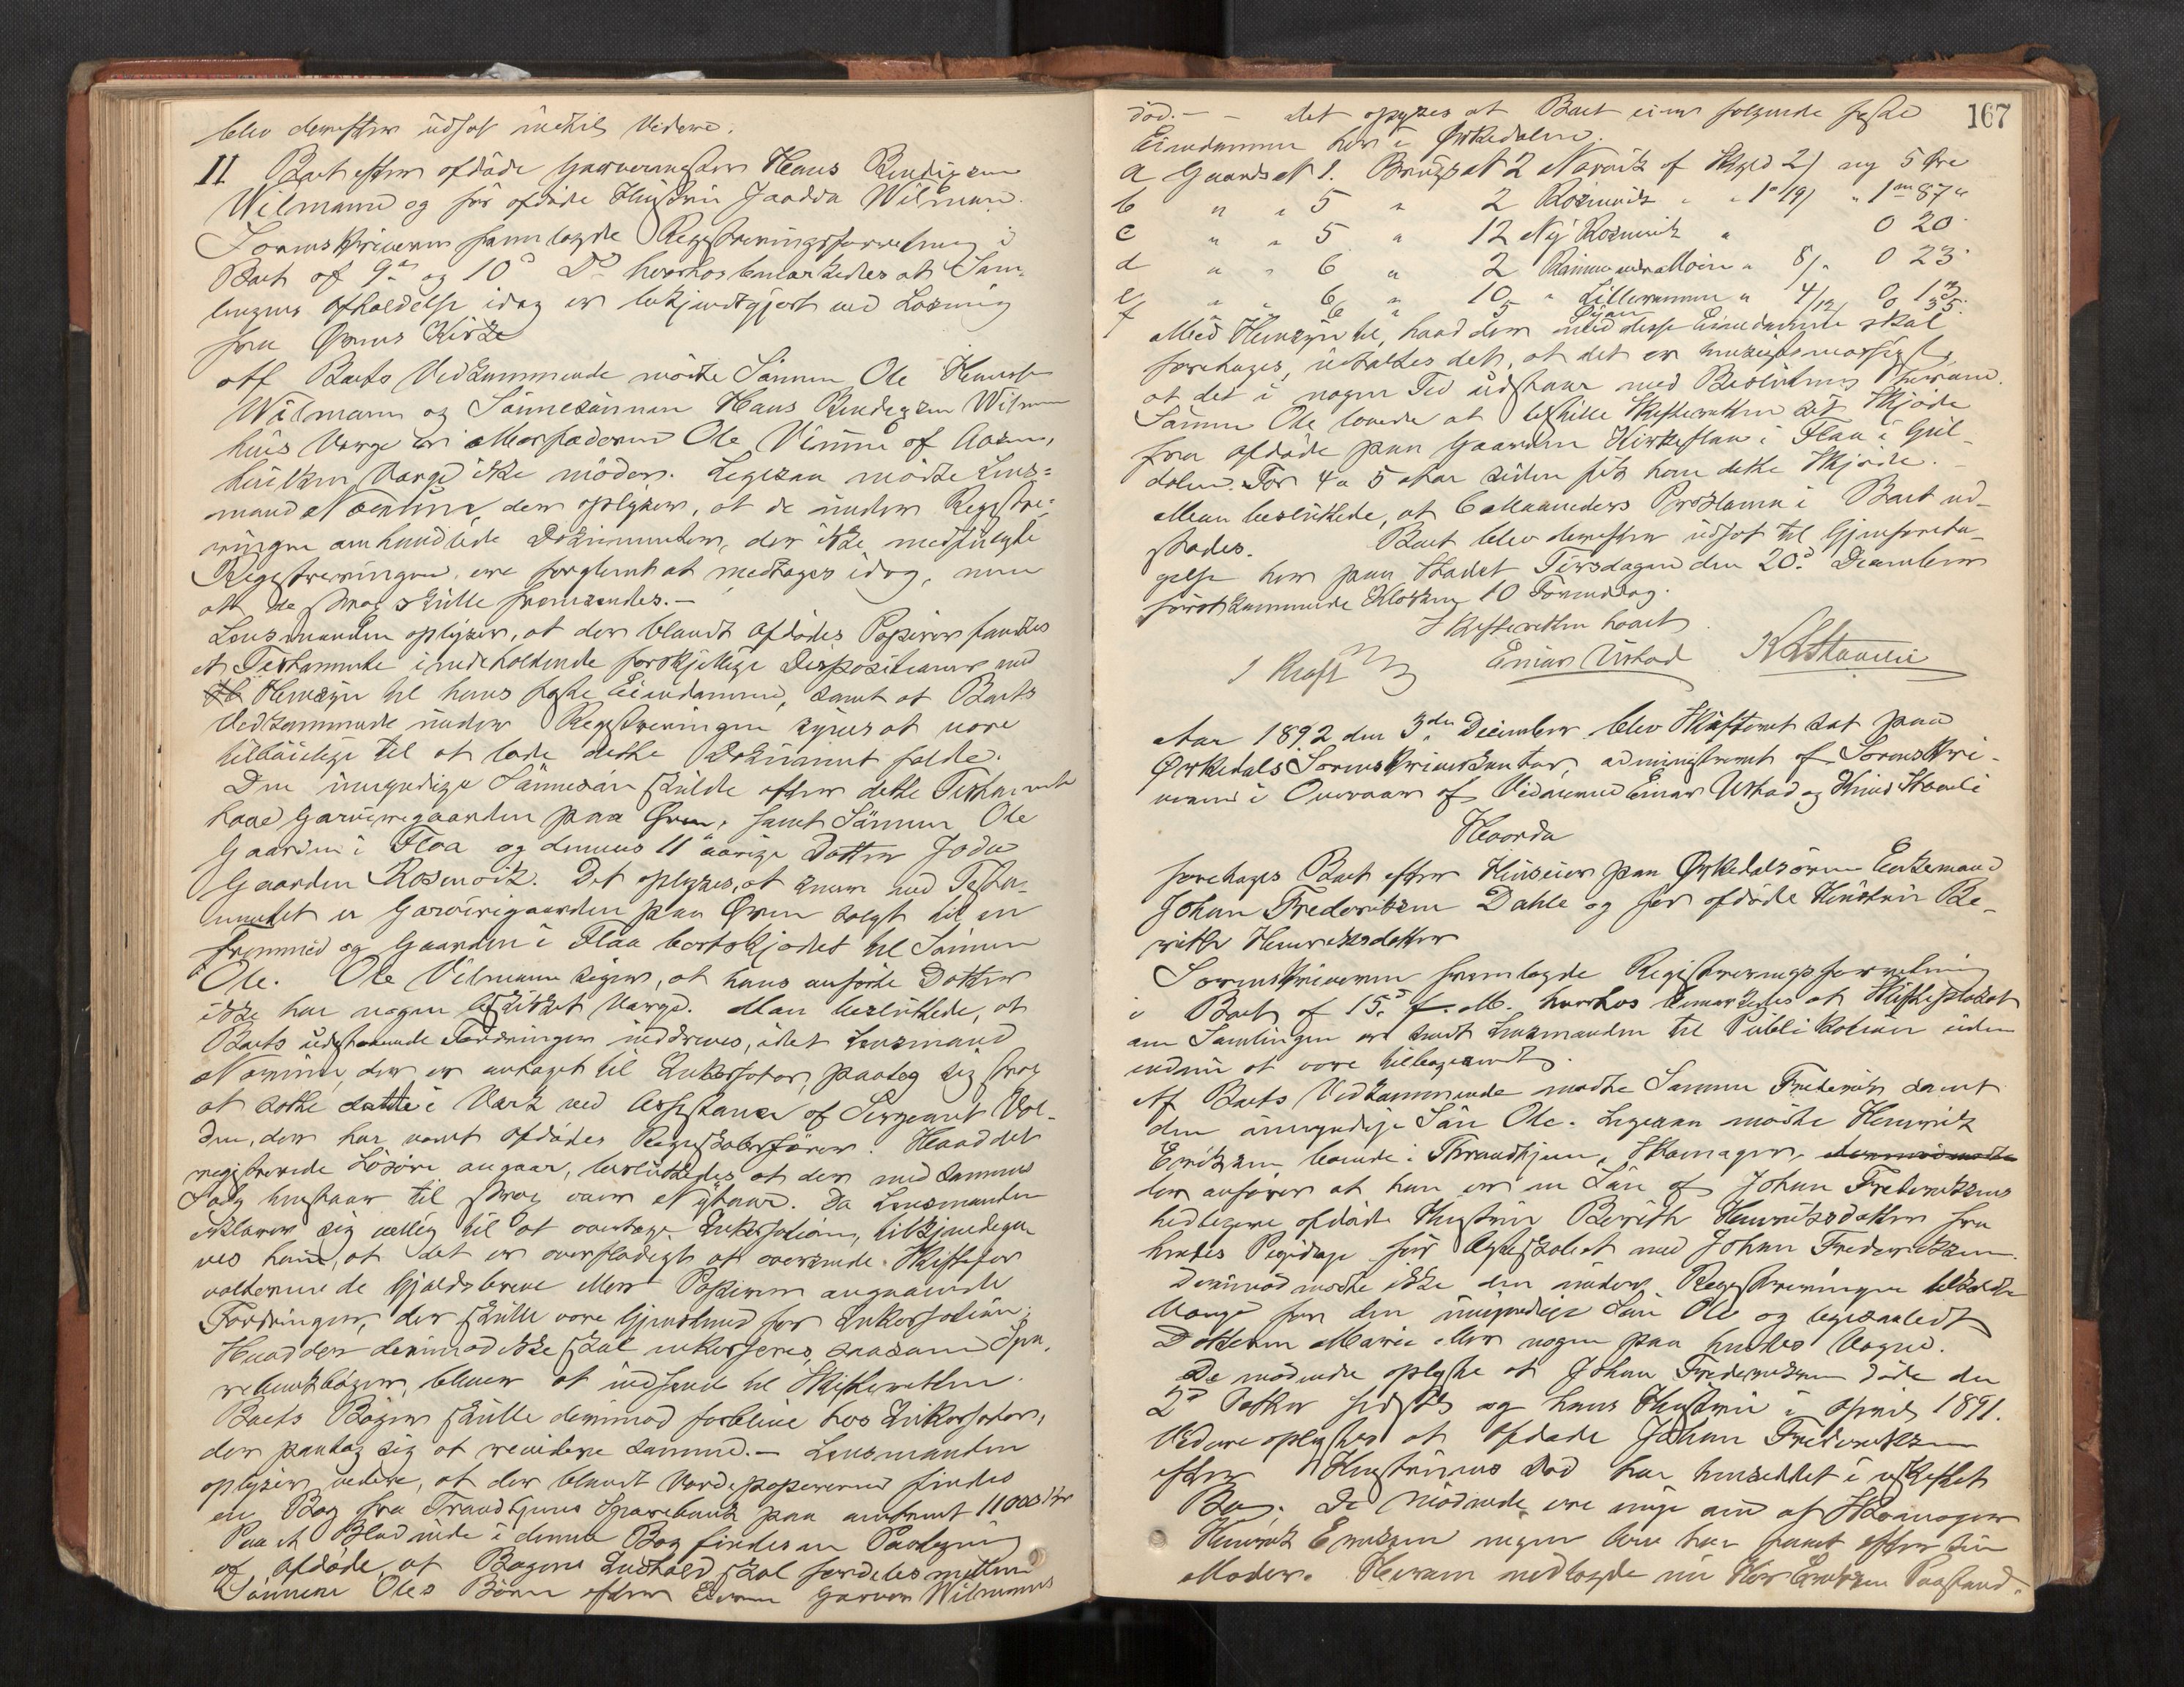 blev derefter udsat indtil Videre.
11 Boet efter afdøde Garvermester Hans Bendigsen
Wilmann og før afdøde Hustru Jaadda Wilmann.
Sorenskriveren fremlagde Registreringsforretning i
Boet af 9de og 10de Ds hvorhos bemærkedes at Sam-
lingens Afholdelse idag er bekjendtgjort ved Læsning
fra Ørens Kirke
Af Boets Vedkommende mødte Sønnen Ole Hansen
Wilmann og Sønnesønnen Hans Bendigsen Wilmann
hvis Værge er Morfaderen Ole Vinnie af
hvilken Værge ikke møder. Ligesaa mødte Lens-
mand Nærum, der oplyser, at de under Registre-
ringen omhandlede Dokumenter, der ikke medfulgte
Registreringen, ere forglemt at medtages idag, men
at de strax skulle fremsendes.—
Lensmanden oplyser, at der blandt Afdødes Papirer fandtes
et Testamente indeholdende forskjellige Dispositioner med
Hensyn til hans faste Eiendomme, samt at Boets
Vedkommende under Registreringen synes at være
tilbøielige til at lade dette Dokument falde.
Den umyndige Sønnesøn skulde efter dette Testamente
have Garverigaarden paa Øren, samt Sønnen Ole
Gaarden i Flaa og dennes 11 aarige Datter Joda
Gaarden Rosmoik. Det oplyses, at
er Garverigaarden paa Øren solgt til en
fremmed og Gaarden i Flaa bortskjødet til Sønnen
Ole. Ole Vilmann siger, at hans anførte Datter
ikke har nogen beskikket Værge. Man besluttede, at
Boets udestaaende Fordringer inddrives, idet Lensmand
Nærum, der er antaget til Inkassator, paatog sig strax
at sætte dette i Værk ved Assistance af Sergeant Vol-
den, der har været Afdødes Regnskabsfører. Hvad det
registrerede Løsøre angaar, besluttedes at der med sammes
Salg henstaar til strax over Nytaar. Da Lensmanden
erklærer sig villig til at overtage Inkassation, tilkjendegav
ves ham, at det er overflødigt at oversende Skiftefor
valterne de Gjældsbreve eller Papirer angaaende
Fordringer, der skulle være Gjenstand for Inkassation.
Hvad der derimod ikke skal inkasseres, saasom Spa-
rebankbøger, bliver at indsende til Skifteretten.
Boets Bøger skulle derimod forblive hos Inkassator,
der paatog sig at revidere samme.— Lensmanden
oplyser videre, at der blandt Værdipapirerne findes
en Bog fra Trondhjems Sparebank paa omtrent 11000 Kr
Paa et Blad inde i denne Bog findes en Paategning
af Afdøde, at Bogens Indhold skal fordeles mellem
Sønnen Oles Børn efter Garver Wilmanns
167
død.— – Det oplyses at Boet eier følgende faste
Eiendomme her i Ørkedalen.
a Gaards N 1. Brugs N 2 Norvik af Skyld 2/ ny 5 Øre
b " " 5 " 2 Rosmoik " " 1 19/ " 1 m 87 "
c " " 5 " 12 Ny Rosmoik " 0 20
d " " 6 " 2 " 8/ " 0 23
e " " 6 " 10 " Lillerømmen " 4/ 0 13
f " " 6 " 5 Øian /12 0 35
Med Hensyn til, hvad der med disse Eiendomme skal
foretages, udtaltes det, at det er hensigtsmæssigst,
at det i nogen Tid udstaar med Beslutning herom.
Sønnen Ole lovede at tilstille Skifteretten sit Skjøde
fra Afdøde paa Gaarden Kirkeflaa i Flaa i Gul-
dalen. For 4 a 5 Aar siden fik han dette Skjøde.
Man besluttede, at 6 Maaneders Proklama i Boet ud-
stædes. Boet blev derefter udsat til Gjenforeta-
gelse her paa Stedet Tirsdagen den 20de December
førstkommende Klokken 10 Formiddag.
Skifteretten hævet
J Kraft Einar Ustad K Staulie
Aar 1892 den 3die December blev Skifteret sat paa
Ørkedals Sorenskriverkontor, administreret af Sorenskri-
veren i Overvær af Vidnerne Einar Ustad og Knud Staulie
Hvorda
foretages Boet efter Huseier paa Ørkedalsøren Enkemand
Johan Frederiksen Dahle og før afdøde Hustru Be-
rith Henriksdatter
Sorenskriveren fremlagde Registreringsforretning
i Boet af 15de f. M. hvorhos bemærkedes at Skifteplakat
om Samlingen er sendt Lensmanden til Publikation uden
endnu at være tilbagesendt.
Af Boets Vedkommende mødte Sønnen Frederik samt
den umyndige Søn Ole. Ligesaa mødte Henrik
Eriksen boende i Throndhjem, Skomager,
der anfører at han er en Søn af Johan Frederiksens
tidligere afdøde Hustru Berith Henriksdatter fra
hendes Pigedage før Ægteskabet med Johan Frederiksen.
Derimod mødte ikke den under Registreringen tilkaldte
Værge for den umyndige Søn Ole og ligesaalidt
Datteren Marie eller nogen paa hendes Vegne.
De mødende oplyste at Johan Frederiksen døde den
2de Oktbr sidstl. og hans Hustru i April 1891.
Videre oplystes at Afdøde Johan Frederiksen
efter Hustruens Død har hensiddet i uskiftet
Bo. De mødende ere enige om at Skomager
Henrik Eriksen ingen Arv har faaet efter sin
Moder. Herom nedlagde nu Henr Eriksen Paastand.